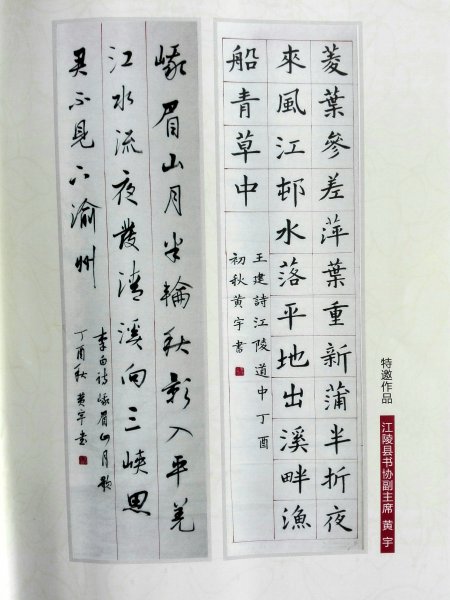 特邀作品
江陵县书协副主席 黄宇
菱葉參差萍葉重新蒲半折夜
來風江邨水落平地出溪畔漁
船青草中
王建詩江陵道中丁酉
初秋黄宇書
峨眉山月半輪秋影入平羌
江水流夜發清溪向三峡思
君不見下渝州
李白詩峨眉山月歌
丁酉秋黄宇书